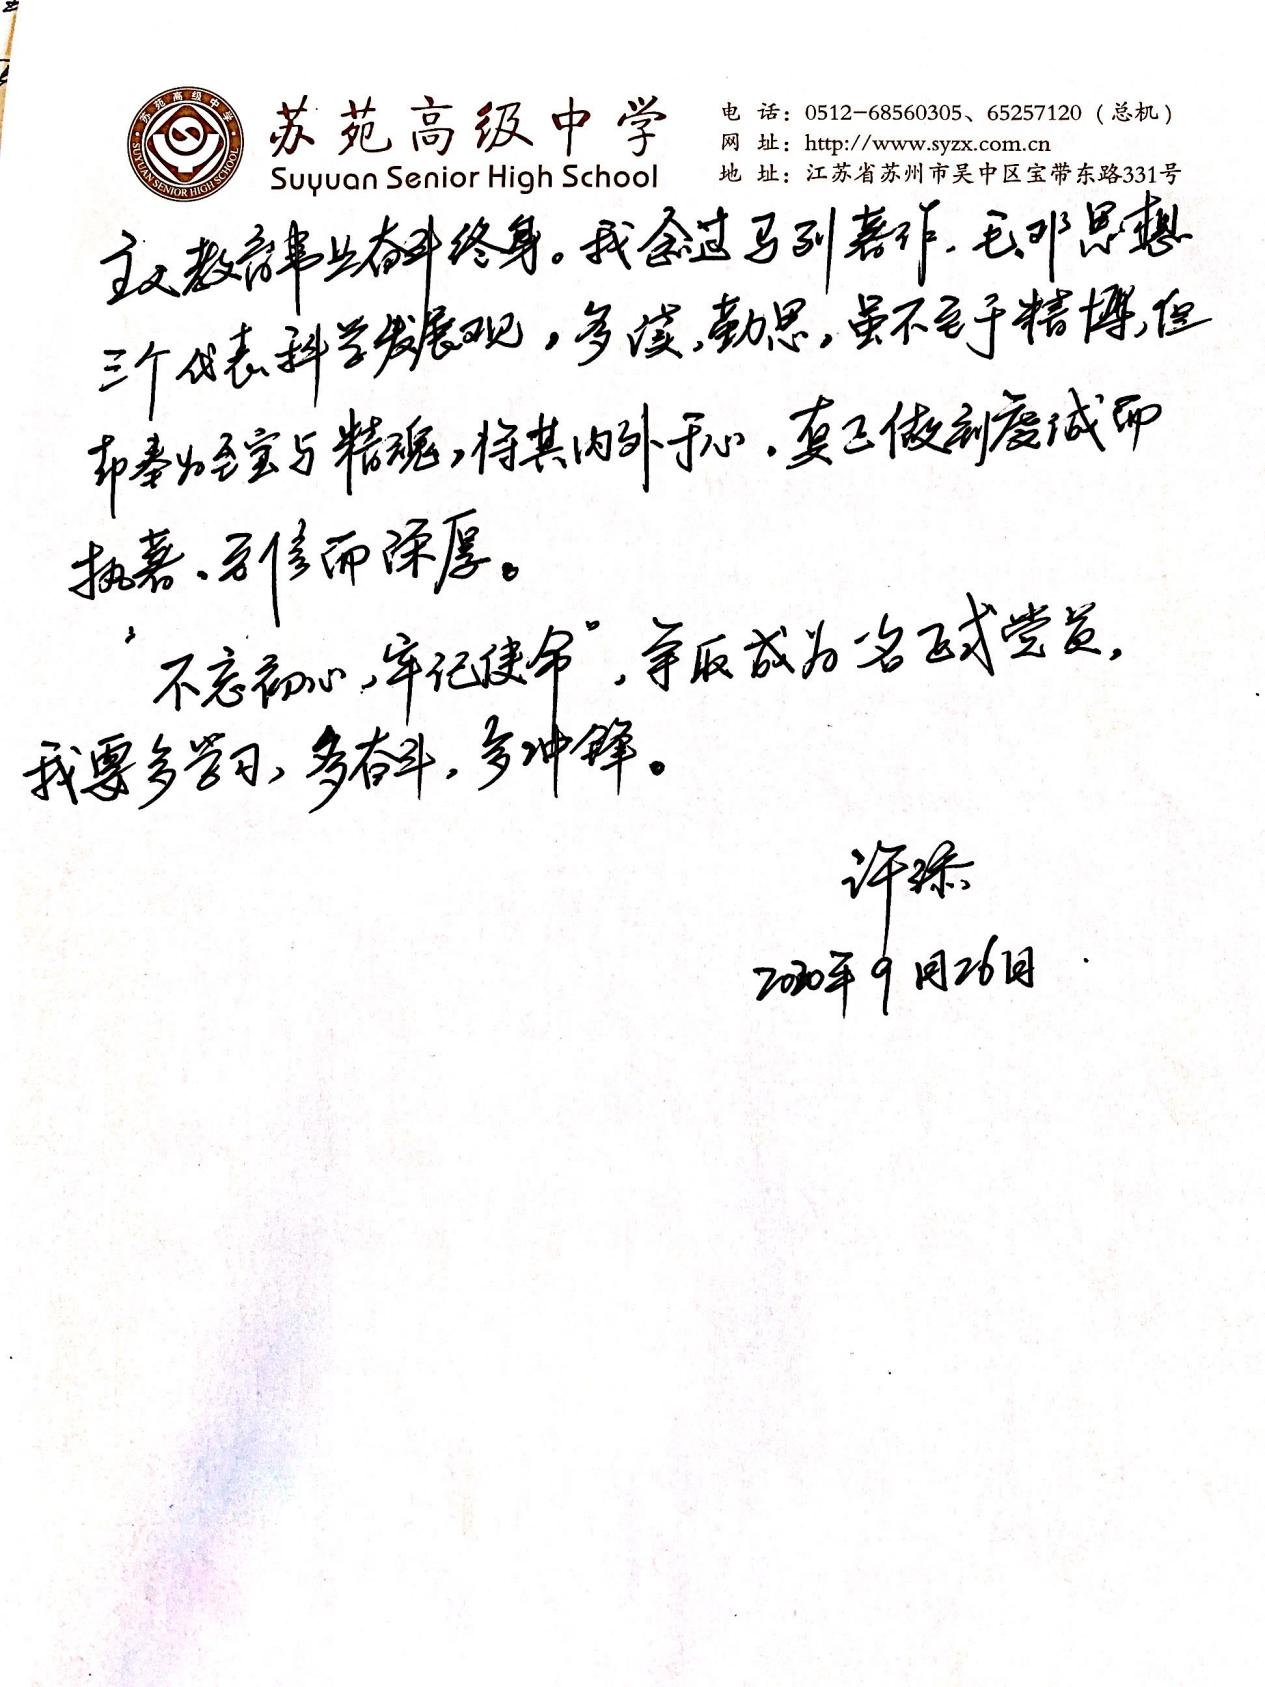 苏苑高级中学
SUYUAN SENIOR HIGH SCHOOL
苏苑高级中学
Suyuan Senior High School
电 话：0512-68560305、65257120（总机）
网 址：http://www.syzx.com.cn
地 址：江苏省苏州市吴中区宝带东路331号
主义教育事业奋斗终身。我会过马列著作、毛、邓思想
三个代表、科学发展观，多读、勤思，虽不至于精博，但
却奉为至宝与精魂，将其内外于心，真正做到虔诚而
执著、笃信而深厚。
“不忘初心，牢记使命”，争取成为一名正式党员，
我要多学习，多奋斗，多冲锋。
许
2020年9月26日